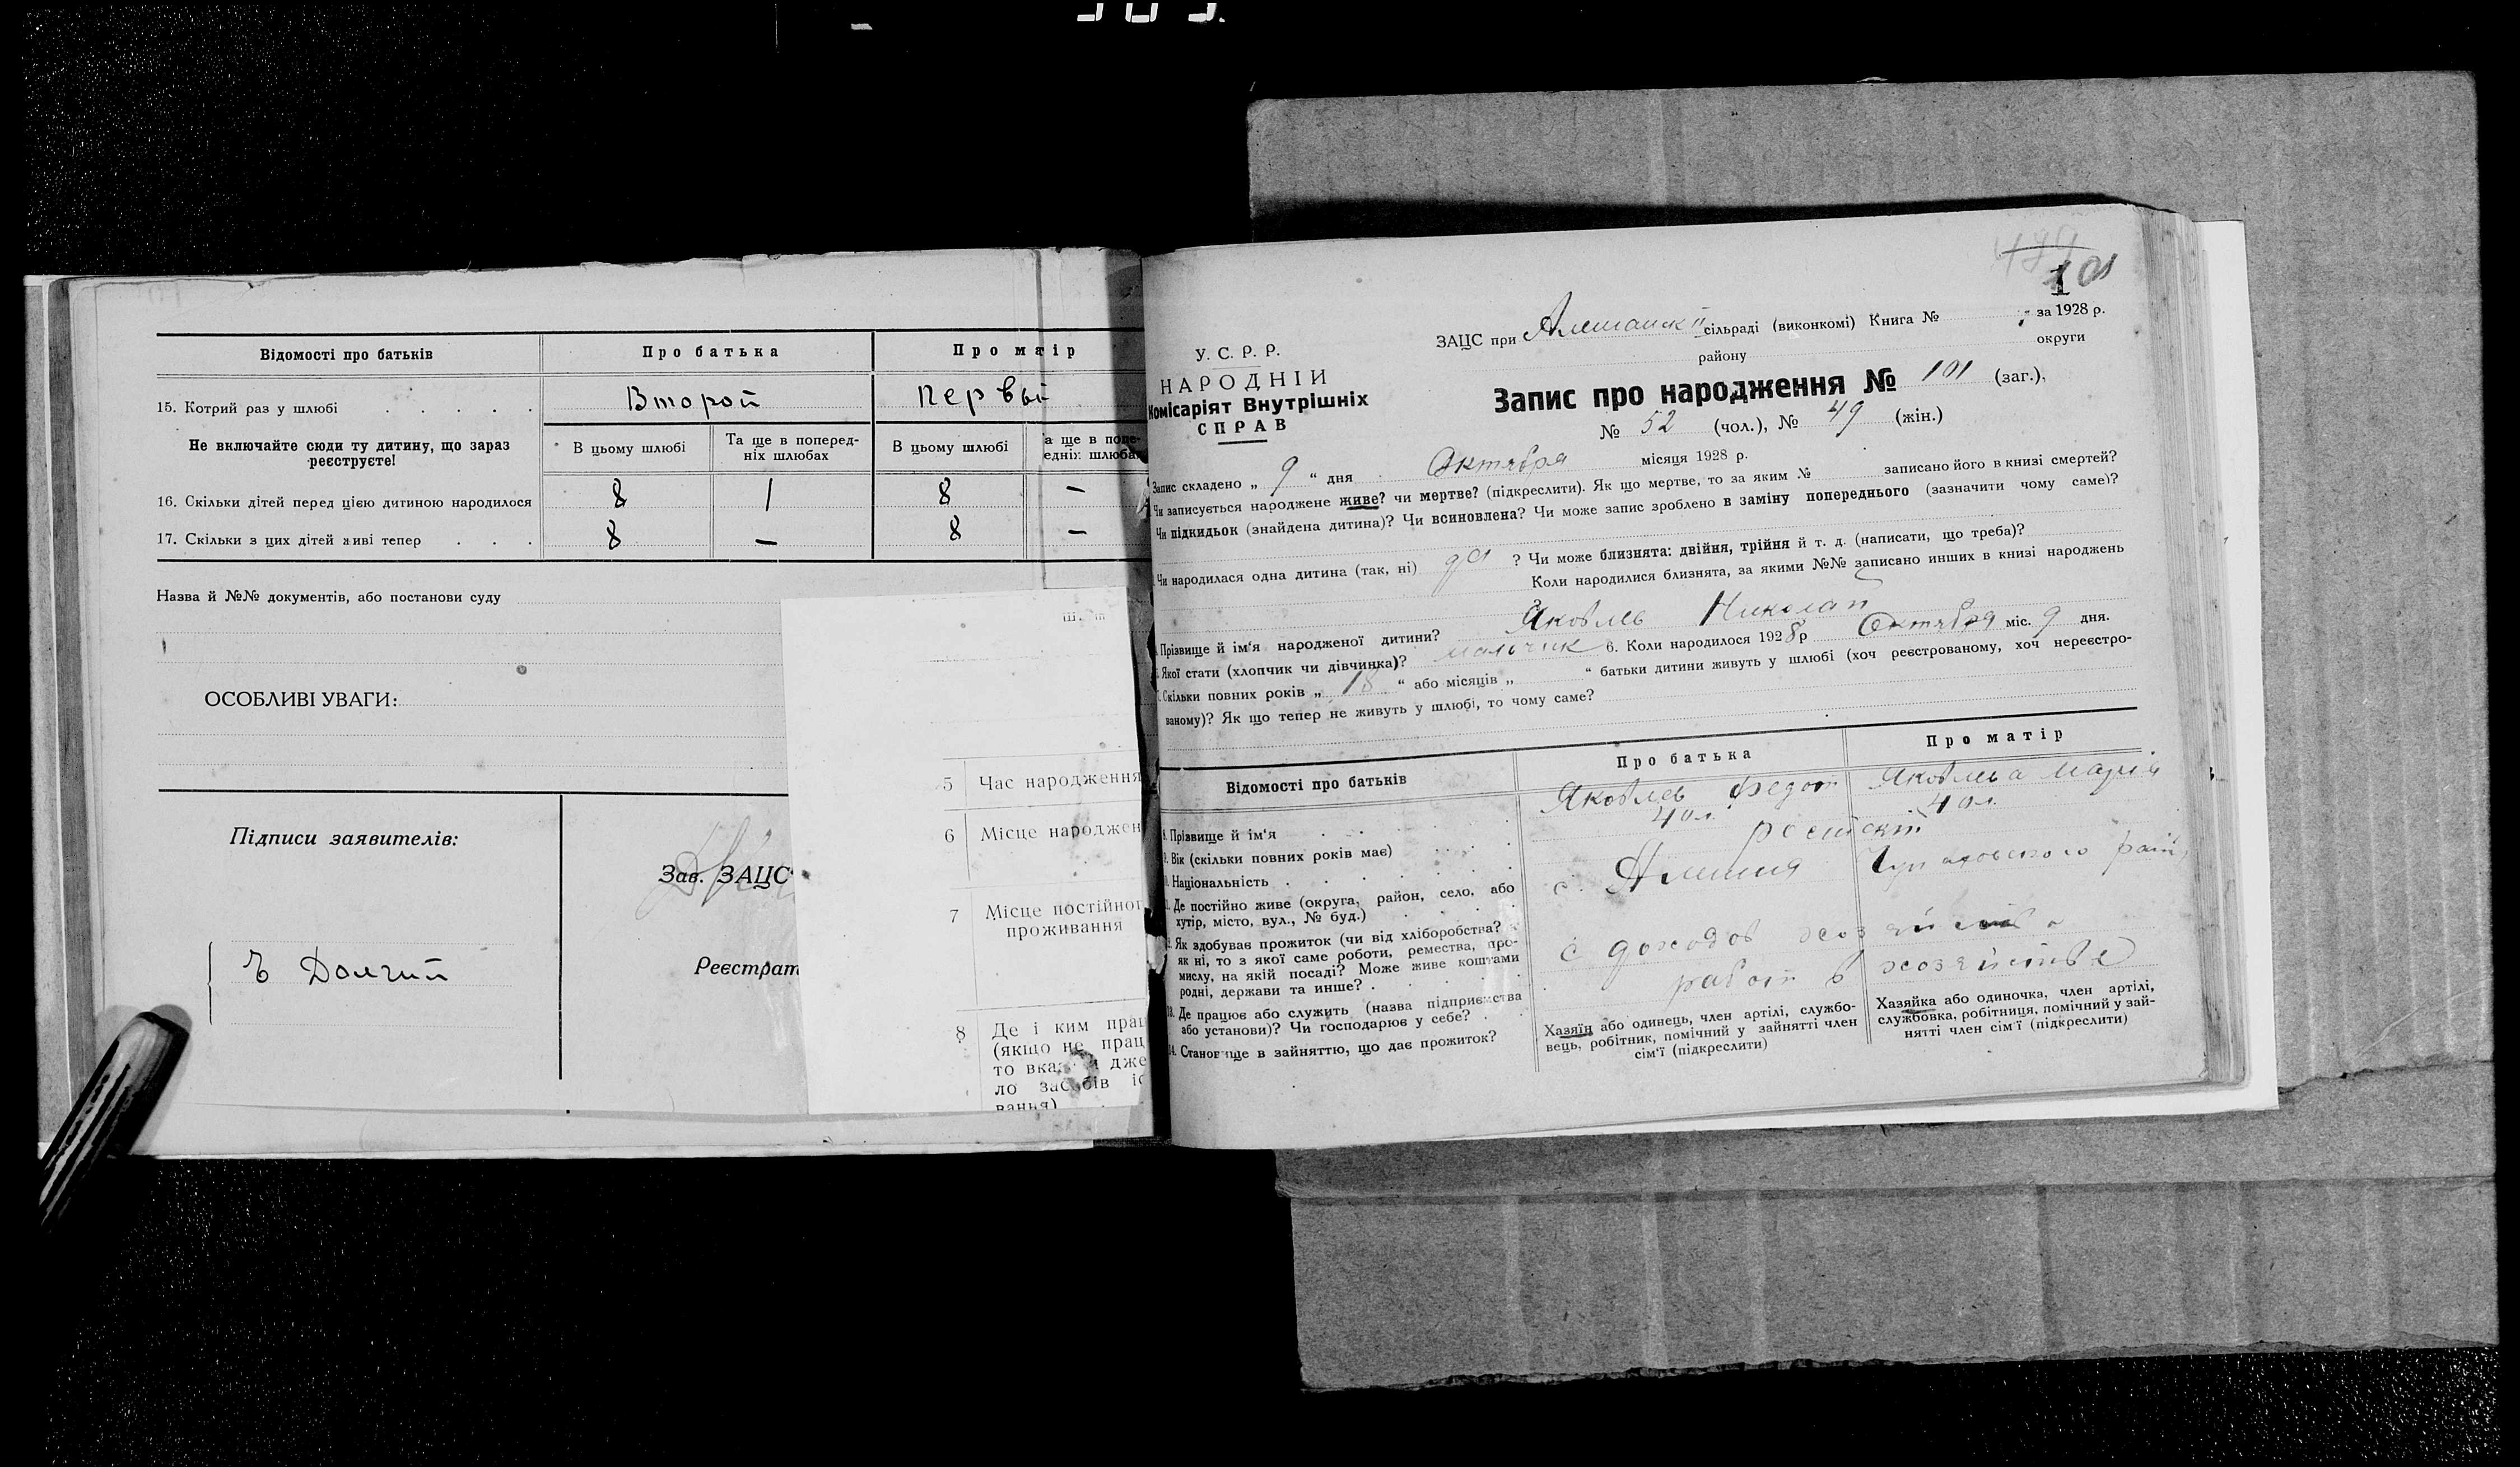 Відомості про батьків
Про батька
Про матір
15. Котрий раз у шлюбі
Второй
Первый
Не включайте сюди ту дитину, що зараз реєструєте!
В цьому шлюбі
Та ще в поперед-
ніх шлюбах
В цьому шлюбі
а ще в попе-
едніх шлюбах
16. Скільки дітей перед цією дитиною народилося
8
1
8
—
17. Скільки з цих дітей живі тепер
8
—
8
—
Назва й №№ документів, або постанови суду
ОСОБЛИВІ УВАГИ:
Підписи заявителів:
Зав. ЗАЦС
Долгий
Реєстрат
5
Час народження
6
Місце народжен
7
Місце постійног
проживання
8
Де і ким прац
(якщо не прац
то вка дже
ло засобів іс
вання)
101
У. С. Р. Р.
НАРОДНІЙ
Комісаріят Внутрішніх
СПРАВ
ЗАЦС при сільраді (виконкомі) Книга № за 1928 р.
району
округи
Запис про народження № 101 (заг.),
№ 52 (чол.), № 49 (жін.)
Запис складено „ 9 “ дня Октября місяця 1928 р.
Чи записується народжене живе? чи мертве? (підкреслити). Як що мертве, то за яким № записано його в книзі смертей?
Чи підкидьок (знайдена дитина)? Чи всиновлена? Чи може запис зроблено в заміну попереднього (зазначити чому саме)?
Чи народилася одна дитина (так, ні) да ? Чи може близнята: двійня, трійня й т. д. (написати, що треба)?
Коли народилися близнята, за якими №№ записано инших в книзі народжень
?
Прізвище й ім'я народженої дитини? Яковлев Николай
Якої стати (хлопчик чи дівчинка)? мальчик 6. Коли народилося 1928 р Октября міс. 9 дня.
Скільки повних років „ 18 “ або місяців „ “ батьки дитини живуть у шлюбі (хоч реєстрованому, хоч нереєстро-
ваному)? Як що тепер не живуть у шлюбі, то чому саме?
Відомості про батьків
Про батька
Про матір
8. Прізвище й ім'я
Яковлев Федот
Яковлева Мария
9. Вік (скільки повних років має)
40 л.
40 л.
10. Національність
11. Де постійно живе (округа, район, село, або
хутір, місто, вул., № буд.)
12. Як здобуває прожиток (чи від хліборобства?
як ні, то з якої саме роботи, ремества, про-
мислу, на якій посаді? Може живе коштами
родні, держави та инше?
с доходов хозяйства
13. Де працює або служить (назва підприємства
або установи)? Чи господарює у себе?
работ в хозяйстве
14. Становище в зайняттю, що дає прожиток?
Хазяїн або одинець, член артілі, службо-
вець, робітник, помічний у зайнятті член
сім'ї (підкреслити)
Хазяйка або одиночка, член артілі,
службовка, робітниця, помічний у зай-
нятті член сім'ї (підкреслити)